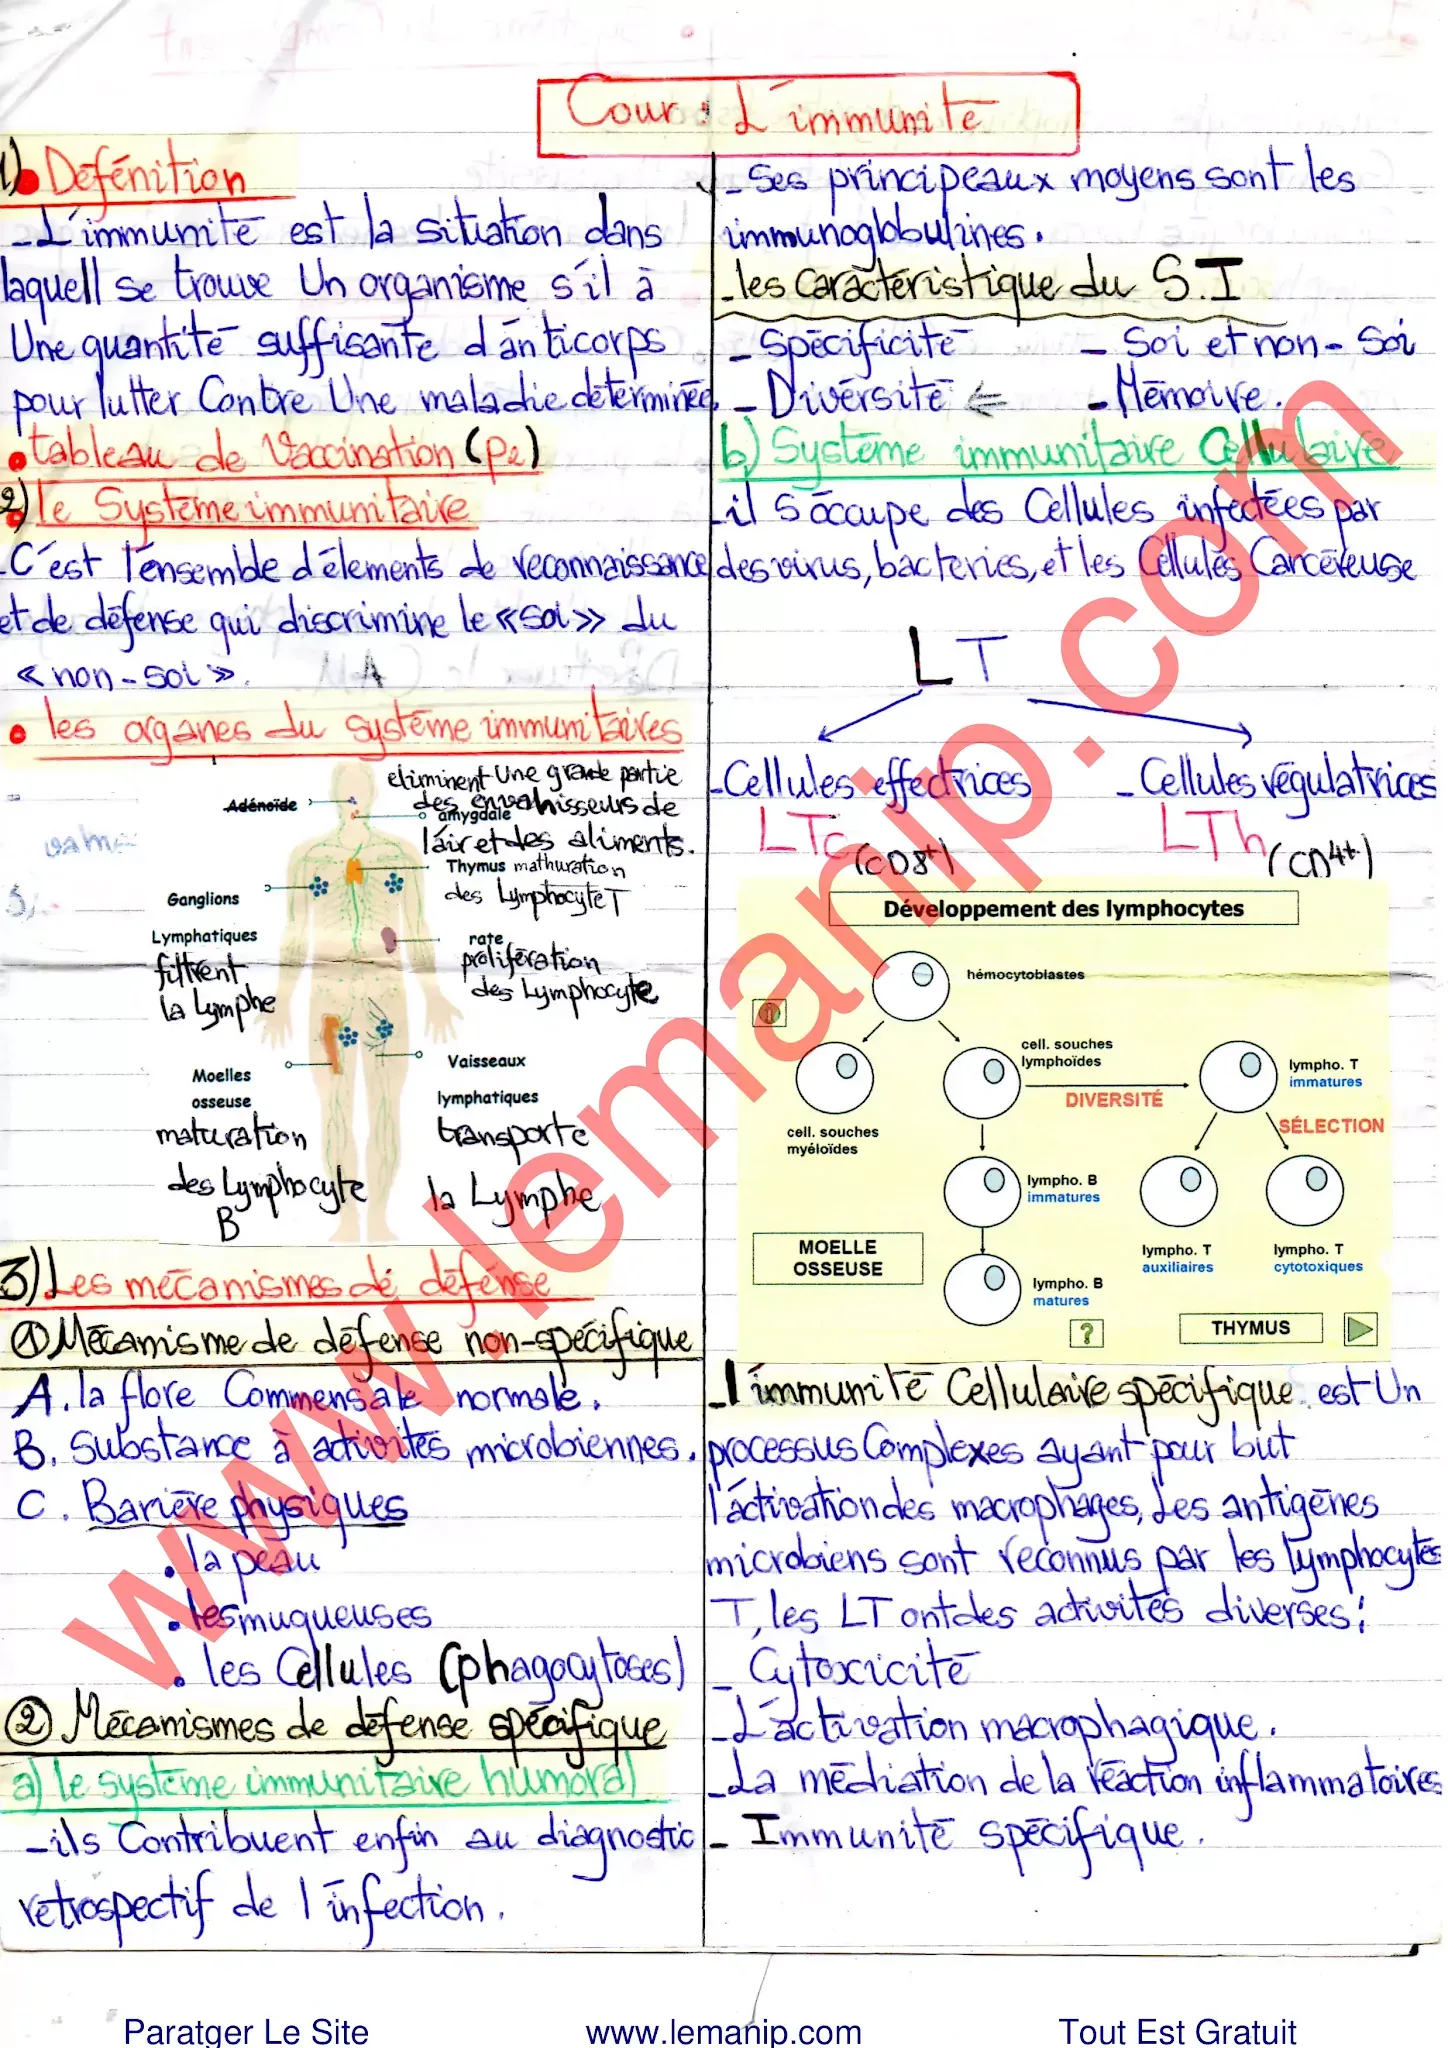 Cour : L'immunité
1) Défénition
- L'immunité est la situation dans
laquell se trouve Un organisme s'il à
Une quantité suffisante d'anticorps
pour lutter Contre Une maladie déterminée.
tableau de Vaccination (P2)
2) le Système immunitaire
- C'est l'ensemble d'élements de reconnaissance
et de défense qui discrimine le «soi» du
«non-soi».
les organes du système immunitaires
Adénoïde
eliminent Une grande partie
des envahisseurs de
amygdale
l'air et des aliments.
Thymus mathuration
des Lymphocyte T
Ganglions
Lymphatiques
filtrent
la Lymphe
rate
prolifération
des Lymphocyte
Moelles
osseuse
maturation
des Lymphocyte
B
Vaisseaux
lymphatiques
transporte
la Lymphe
3) Les mécanismes dé défense
① Mécanisme de défense non-spécifique
A. la flore Commensale normale.
B. Substance à activités microbiennes.
C. Barière physiques
. la peau
. les muqueuses
. les Cellules (phagocytoses)
② Mécanismes de défense spécifique
a) le système immunitaire humoral
- ils Contribuent enfin au diagnostic
rétrospectif de l'infection.
- Ses principeaux moyens sont les
immunoglobulines.
- les Caractéristique du S.I
- Spécificité - Soi et non-Soi
- Diversité ⇐ - Mémoire.
b) Système immunitaire Cellulaire
- il s'occupe des Cellules infectées par
des virus, bacteries, et les Cellules Cancéreuse
LT
- Cellules effectrices - Cellules régulatrices
LTc (CD8+) LTh (CD4+)
Développement des lymphocytes
hémocytoblastes
cell. souches
lymphoïdes
lympho. T
immatures
DIVERSITÉ
SÉLECTION
cell. souches
myéloïdes
lympho. B
immatures
lympho. T
auxiliaires
lympho. T
cytotoxiques
MOELLE
OSSEUSE
lympho. B
matures
?
THYMUS
- l'immunité Cellulaire spécifique. est Un
processus Complexes ayant pour but
l'activation des macrophages, Les antigènes
microbiens sont reconnus par les lymphocytes
T, les LT ont des activités diverses:
- Cytoxicité
- L'activation macrophagique.
- La médiation de la réaction inflammatoires
- Immunité spécifique.
www.lemanip.com
Paratger Le Site www.lemanip.com Tout Est Gratuit